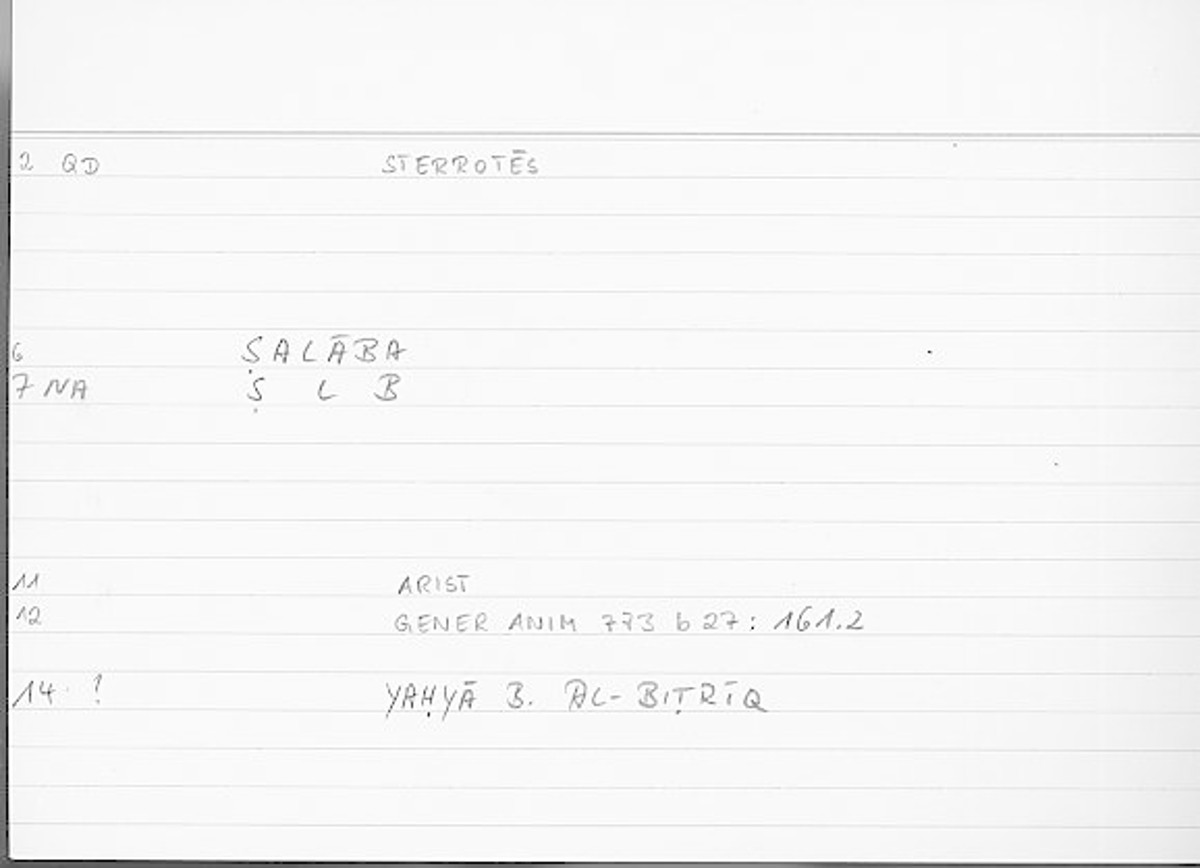 2 QD STERROTĒS
6 ṢALĀBA
7 NA Ṣ L B
11 ARIST
12 GENER ANIM 773 b 27: 161.2
14 ! YAḤYĀ B. AL-BIṬRĪQ